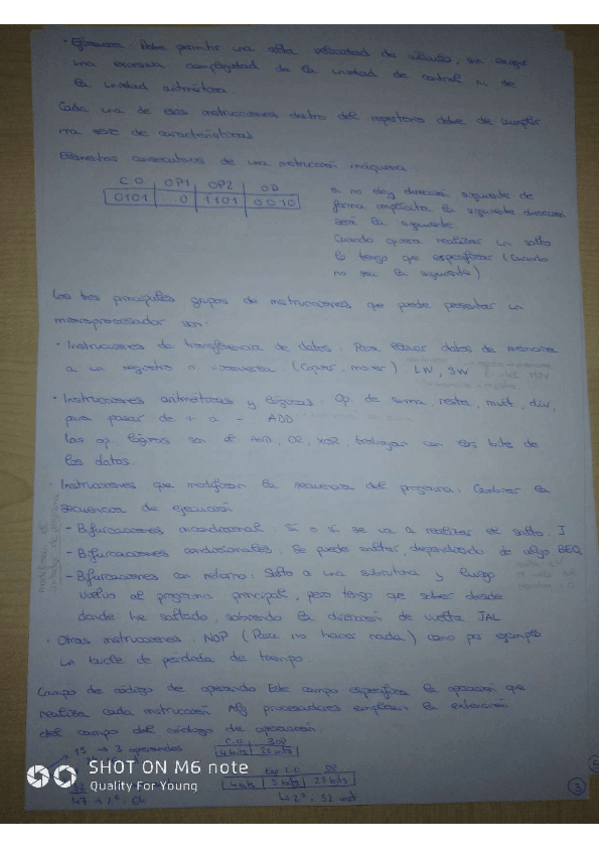 · Eficiencia: Debe permitir una alta velocidad de cálculo, sin exigir
una excesiva complejidad de la unidad de control ni de
la unidad aritmética.
Cada una de esas instrucciones dentro del repertorio debe de cumplir
una serie de características
Elementos consecutivos de una instrucción máquina:
C.O OP1 OP2 OD
0101 ..0 1101 0010
si no doy dirección siguiente de
forma implícita la siguiente dirección
será la siguiente
Cuando quiera realizar un salto
lo tengo que especificar (Cuando
no sea la siguiente)
Los tres principales grupos de instrucciones que puede presentar un
microprocesador son:
· Instrucciones de transferencia de datos: Para llevar datos de memoria
a un registro o viceversa. (Copiar, mover). LW, SW
· Instrucciones aritméticas y lógicas: Op. de suma, resta, mult, div,
para pasar de + a - ADD
Las op. lógicas son el AND, OR, XOR trabajan con los bits de
los datos.
· Instrucciones que modifican la secuencia del programa: Cambiar la
secuencia de ejecución
- Bifurcaciones incondicional: Sí o sí se va a realizar el salto. J
- Bifurcaciones condicionales: Se puede saltar, dependiendo de algo BEQ
- Bifurcaciones con retorno: Salto a una subrutina y luego
vuelvo al programa principal, pero tengo que saber desde
donde he saltado, sabiendo la dirección de vuelta JAL
· Otras instrucciones: NOP (Para no hacer nada) como por ejemplo
un bucle de pérdida de tiempo.
Campo de código de operando Este campo especifica la operación que
realiza cada instrucción Alg procesadores emplean la extensión
del campo del código de operación:
15 → 3 operandos
C.O 3OP
4 bits 28 bits
Exp. C.O OP
4 bits 5 bits 23 bits
↳ 2⁵ = 32 inst
SHOT ON M6 note
Quality For Young
3